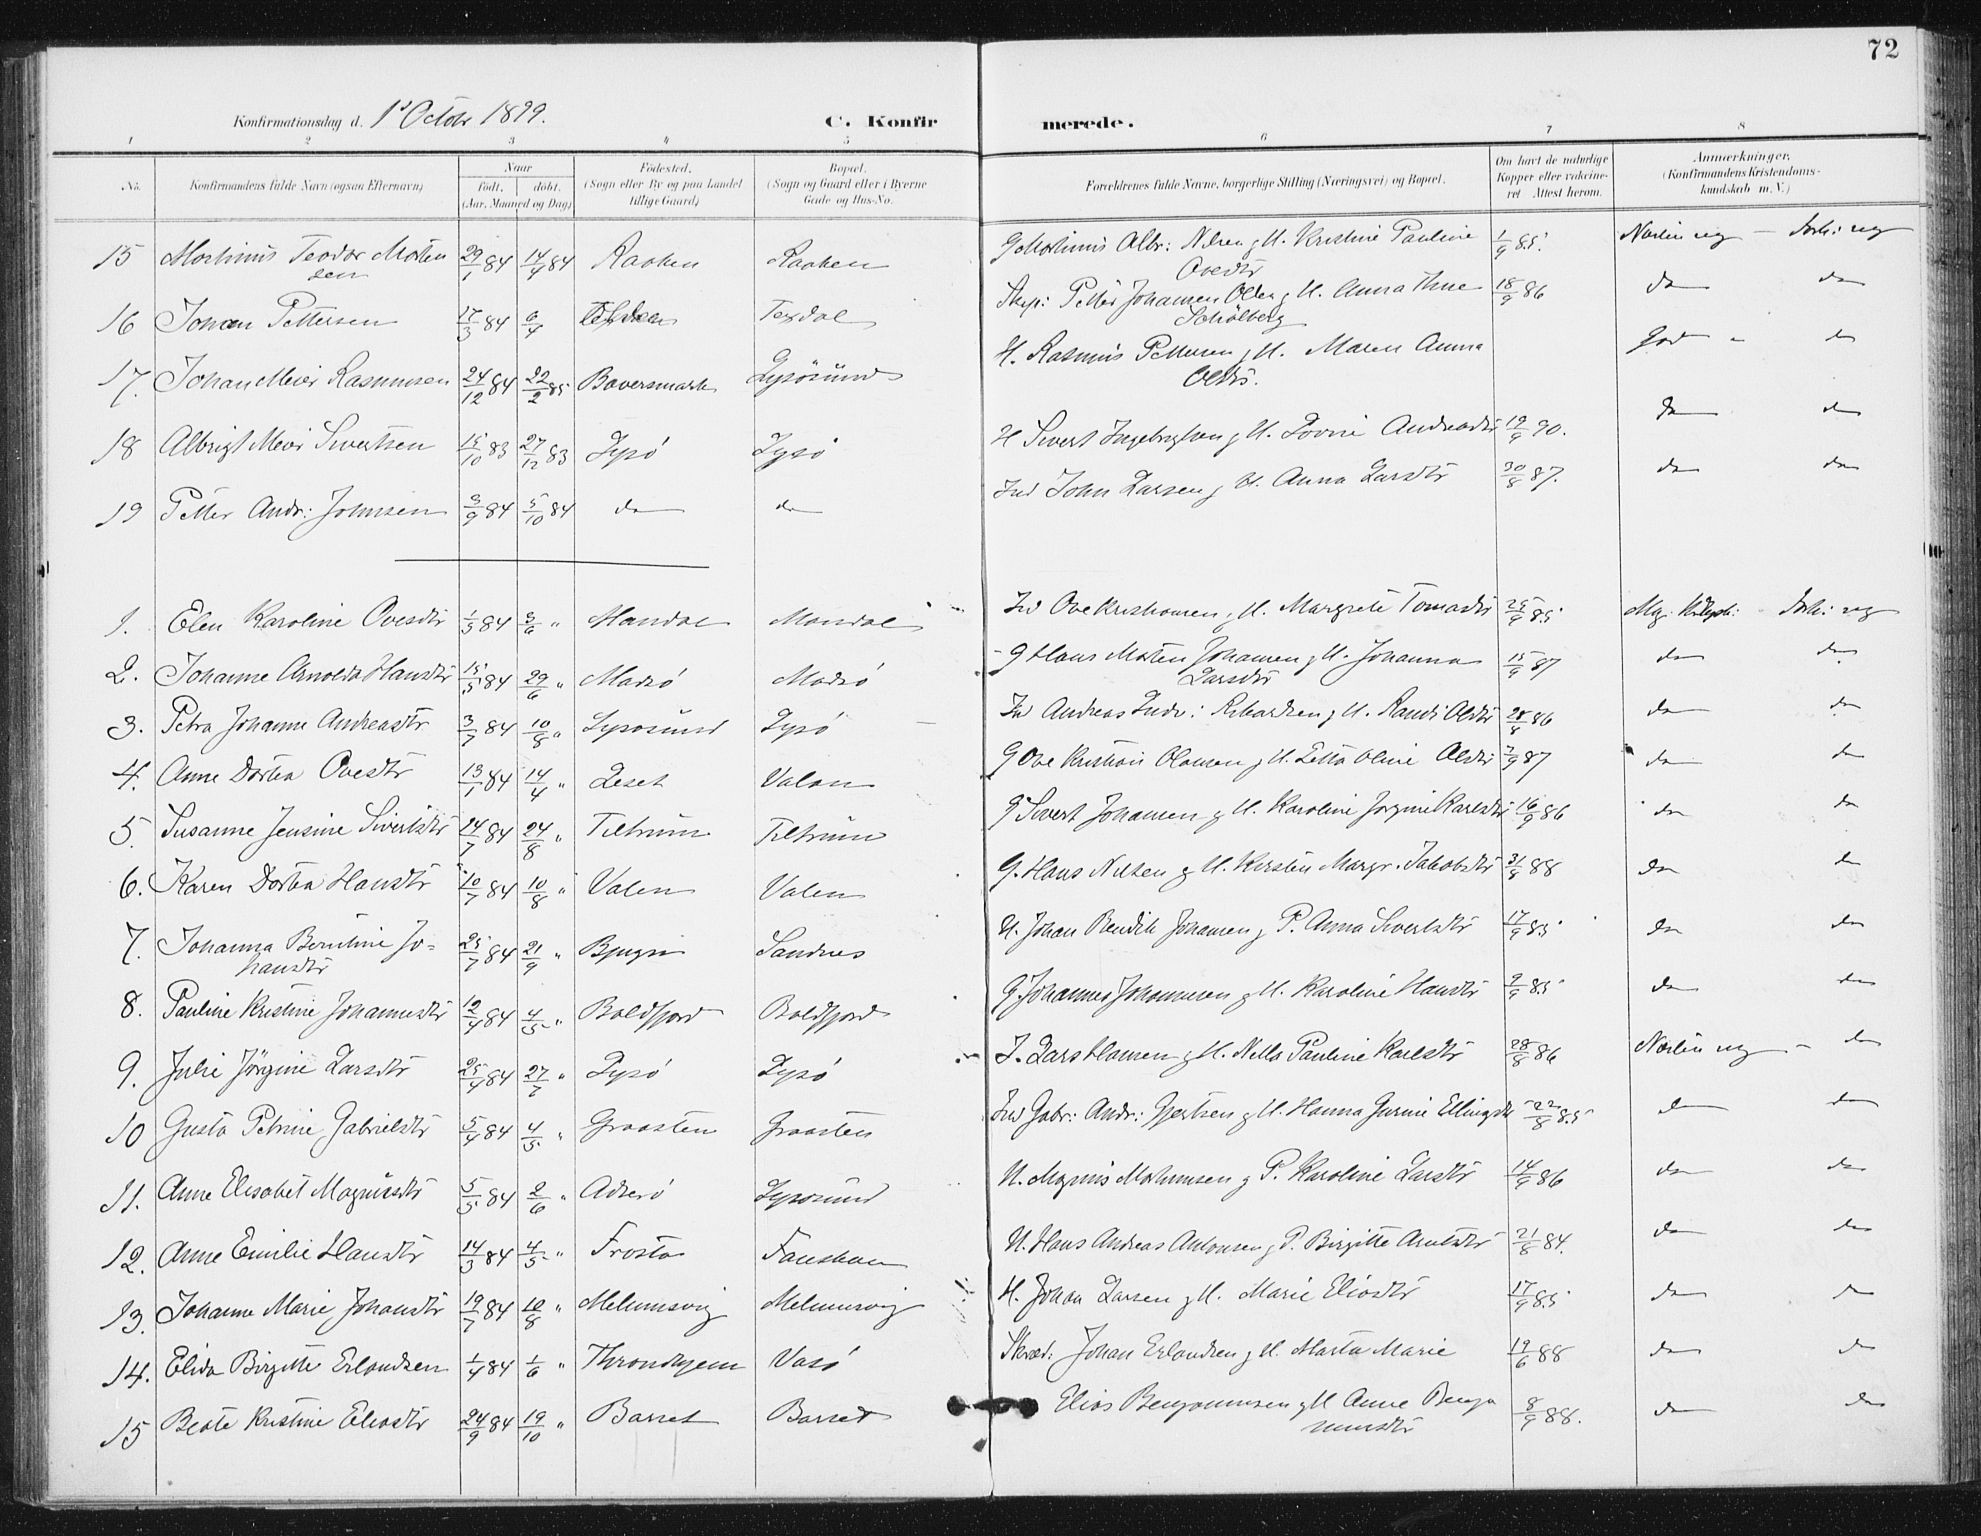 72
Konfirmationsdag d. 1ˢ Octobr 1899.
C. Konfir merede.
1 2 3 4 5 6 7 8
No.
Konfirmandens fulde Navn (ogsaa Efternavn)
Naar
født. døbt.
(Aar, Maaned og Dag)
Fødested.
(Sogn eller By og paa Landet
tillige Gaard)
Bopæl.
(Sogn og Gaard eller i Byerne
Gade og Hus-No.
Forældrenes fulde Navne, borgerlige Stilling (Næringsvei) og Bopæl.
Om havt de naturlige
Kopper eller vakcine-
ret Attest herom.
Anmærkninger.
(Konfirmandens Kristendoms-
kundskab m. V.)
15 Mortinus Teodor Morten 29/1 84 14/4 84 Raaken Raaken Kristine Pauline 1/9 85.
sen Ovedtr
16 Johan Pettersen 17/3 84 6/4 Texdal Petter Johansen M. Anna Trine 18/9 86 do do
Schølberg
17. Johan Meier Rasmussen 24/12 84 22/2 85 Baversmark Lysøsund H. Rasmus Pettersen g M. Maren Anna God do
Olsdtr.
18 Albrigt Meier Sivertsen 15/10 83 27/12 83 Lysø Lysø H Sivert Ingebrigtsen g M. Lovise Andreasdtr 19/9 90. do do
19 Petter Andr: Johnsen 3/9 84 5/10 84 do do Ind John Larsen g M. Anna Larsdtr 30/8 87. do do
1. Elen Karoline Ovesdtr 1/5 84 3/6 " Mandal Mandal Ind Ove Kristiansen g M. Margrete Tomasdtr 25/9 85
2. Johanne Arnolda Hansdtr 15/5 84 29/6 " Madsø Madsø G Hans Morten Johansen g M. Johanna 15/9 87 do do
Larsdtr
3. Petra Johanne Andreasdtr 3/7 84 10/8 " Lysøsund Lysø Ind Andreas Indr: Rikardsen g M. Randi Olsdtr 28/8 86 do do
4. Anne Dortea Ovesdtr 13/1 84 14/4 " Leset Valan G Ove Kristian Olausen g M. Letta Oline Olsdtr 7/9 87 do do
5. Susanne Jensine Sivertsdtr 24/7 84 24/8 " Teltrum Teltrum G Sivert Johansen g M. Karoline Jørgine Karlsdtr 16/9 86 do do
6. Karen Dortea Hansdtr 10/7 84 10/8 " Valen Valen G. Hans Nilsen g M. Kirsten Margr. Jakobsdtr 31/8 88 do do
7. Johanna Berntine Jo- 25/7 84 21/9 " Bjugn Sandnes U. Johan Bendik Johansen g P. Anna Sivertsdtr 17/9 85 do do
hansdtr
8. Pauline Kristine Johannesdtr 12/4 84 4/5 " Boldfjord Boldfjord G Johannes Johannesen g M. Karoline Hansdtr 9/9 85 do do
9. Julie Jørgine Larsdtr 25/4 84 27/7 " Lysø Lysø I. Lars Hansen g M. Nella Pauline Karlsdtr 28/8 86 do
10 Gusta Petrine Gabrielsdtr 5/4 84 4/5 " Graasten Graasten Ind Gabr: Andr: Gjertsen g M. Hanna Gurine Ellingsdtr 22/8 85 do do
11. Anne Elisabet Magnusdtr 5/5 84 2/6 " Adserø Lysøsund U. Magnus Mortensen g P. Karoline Larsdtr 14/9 86 do do
12. Anne Emilie Hansdtr 14/3 84 4/5 " Frosta Fauskan U. Hans Andreas Antonsen g P. Birgitte Arntsdtr 21/8 84. do do
13. Johanne Marie Johansdtr 19/7 84 10/8 " Melumsvig Melumsvig H. Johan Larsen g M. Marie Eliasdtr 17/9 85 do do
14. Elida Birgitte Erlandsen 1/4 84 1/6 " Throndhjem Vasø Skræd: Johan Erlandsen g M. Marta Marie 19/6 88 do do
15 Beate Kristine Eliasdtr 24/9 84 19/10 " Barset Barset Elias Benjaminsen g M Anne Benja 8/9 88. do do
minsdtr